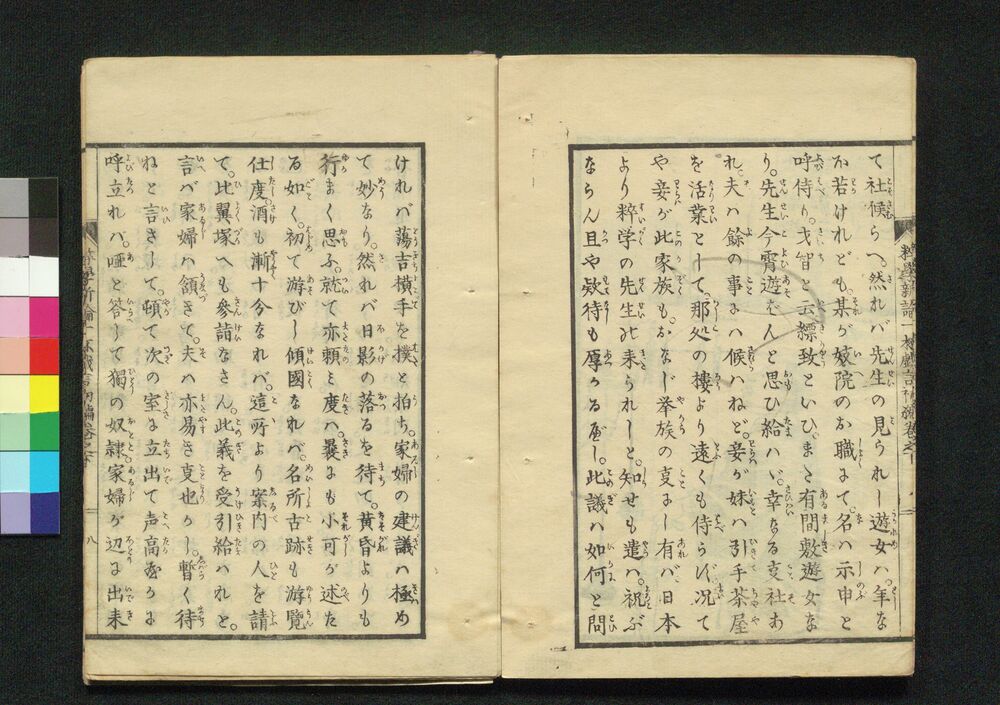 て社候らへ。然れバ先生の見られし遊女ハ。年な
か若けれども。某が妓院のお職にて。名ハ示申と
呼侍り。才智と云縹致といひ。また有間敷遊女な
り。先生今宵遊ばんと思ひ給ハヾ。幸なる支社あ
れ。夫ハ餘の事にハ候ハねど。妾が妹ハ引手茶屋
を活業として。那処の樓より遠くも侍らバ。况て
や妾が此家族も。おなじ挙族の支に有バ。日本
より粋学の先生の来られしと。知せも遣ハ。祝ぶ
ならん且や欵待も厚かるべし。此議ハ如何と問
けれバ蕩吉横手を撲と拍ち。家婦の建議ハ極め
て妙なり。然れバ日影の落るを待て。黄昏よりも
行まく思ふ。就て亦頼ミ度ハ。曩にも小可が述た
る如く。初て游びし傾國なれバ。名所古跡も游覧
仕度。酒も漸十分なれバ。這所より案内の人を請
て。比翼塚へも參詣なさん。此義を受引給ハれと。
言バ家婦ハ頷きて。夫ハ亦易き支也かし。暫く待
ねと言さして。頓て次の室に立出て声高やかに
呼立れバ。唖と答して獨の奴隷家婦が辺に出来
粋學新論一大戯言初編巻之下
八